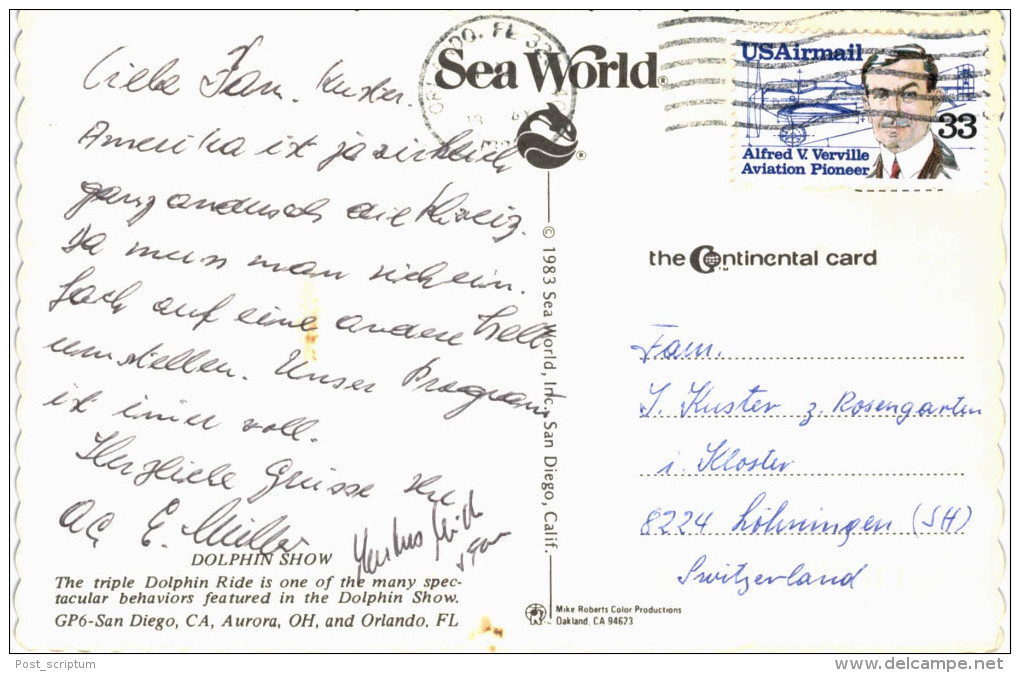 Liebe Fam. Kuster.
Amerika ist ja wirklich
ganz anders als die Schweiz.
Da muss man sich ein-
fach auf eine andere Welt
umstellen. Unser Programm
ist immer voll.
Herzliche Grüsse
E. Müller
DOLPHIN SHOW
The triple Dolphin Ride is one of the many spec-
tacular behaviors featured in the Dolphin Show.
GP6-San Diego, CA, Aurora, OH, and Orlando, FL
ORLANDO, FL
Sea World®
©1983 Sea World, Inc., San Diego, Calif.
USAirmail
33
Alfred V. Verville
Aviation Pioneer
the Continental card
TM
Fam.
J. Kuster z. Rosengarten
i. Kloster
8224 Löhningen (SH)
Switzerland
Mike Roberts Color Productions
Oakland, CA 94623
Post_scriptum
www.delcampe.net